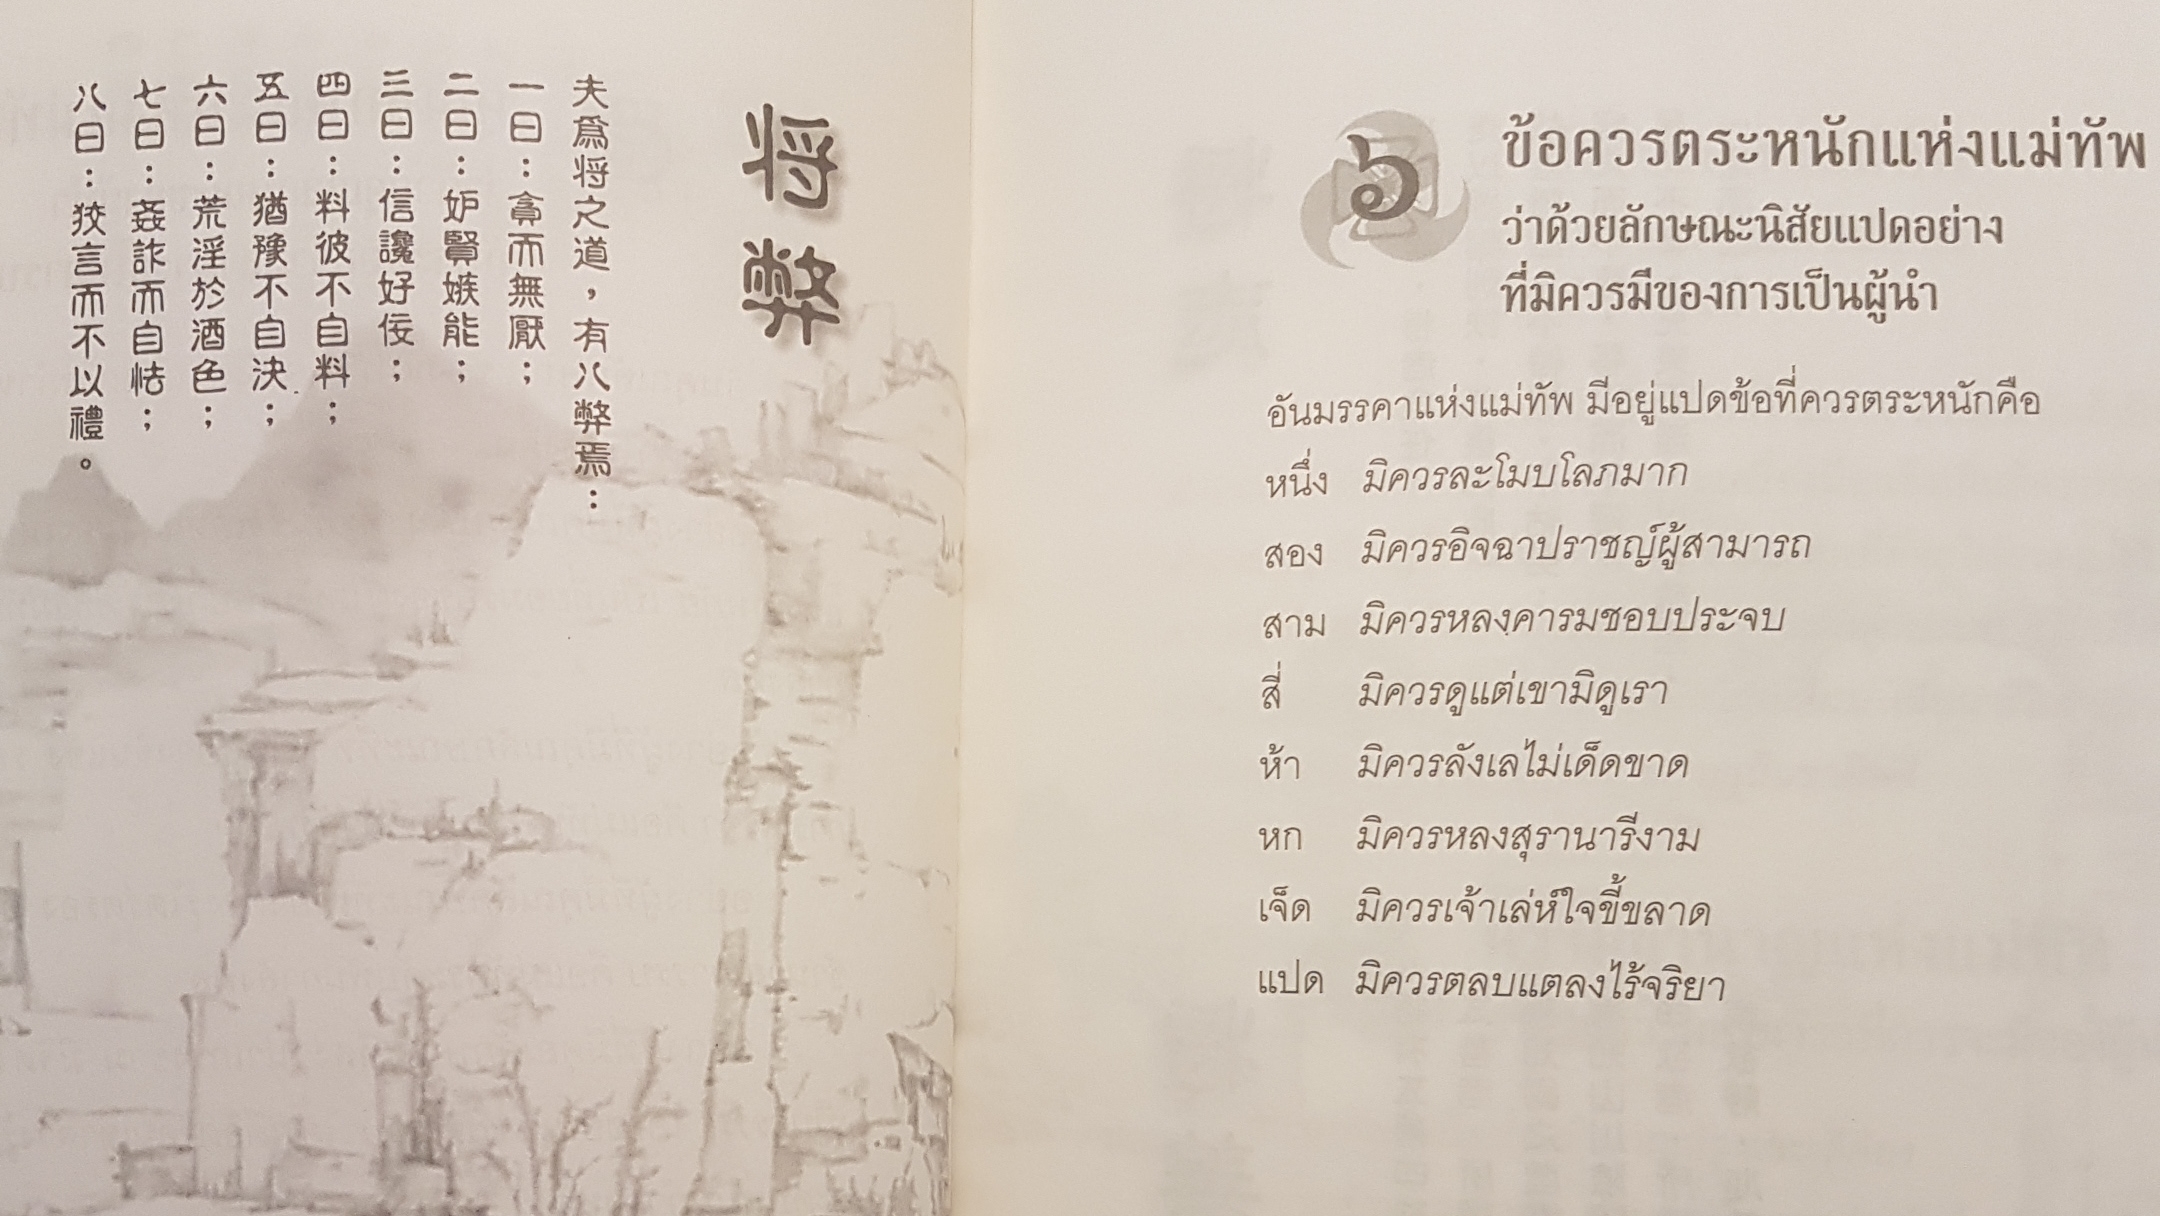 将弊
夫爲将之道，有八弊焉：
一曰：貪而無厭；
二曰：妒賢嫉能；
三曰：信讒好佞；
四曰：料彼不自料；
五曰：猶豫不自決；
六曰：荒淫於酒色；
七曰：姦詐而自怯；
八曰：狡言而不以禮。
๖
ข้อควรตระหนักแห่งแม่ทัพ
ว่าด้วยลักษณะนิสัยแปดอย่าง
ที่มิควรมีของการเป็นผู้นำ
อันมรรคาแห่งแม่ทัพ มีอยู่แปดข้อที่ควรตระหนักคือ
หนึ่ง มิควรละโมบโลภมาก
สอง มิควรอิจฉาปราชญ์ผู้สามารถ
สาม มิควรหลงคารมชอบประจบ
สี่ มิควรดูแต่เขามิดูเรา
ห้า มิควรลังเลไม่เด็ดขาด
หก มิควรหลงสุรานารีงาม
เจ็ด มิควรเจ้าเล่ห์ใจขี้ขลาด
แปด มิควรตลบแตลงไร้จริยา